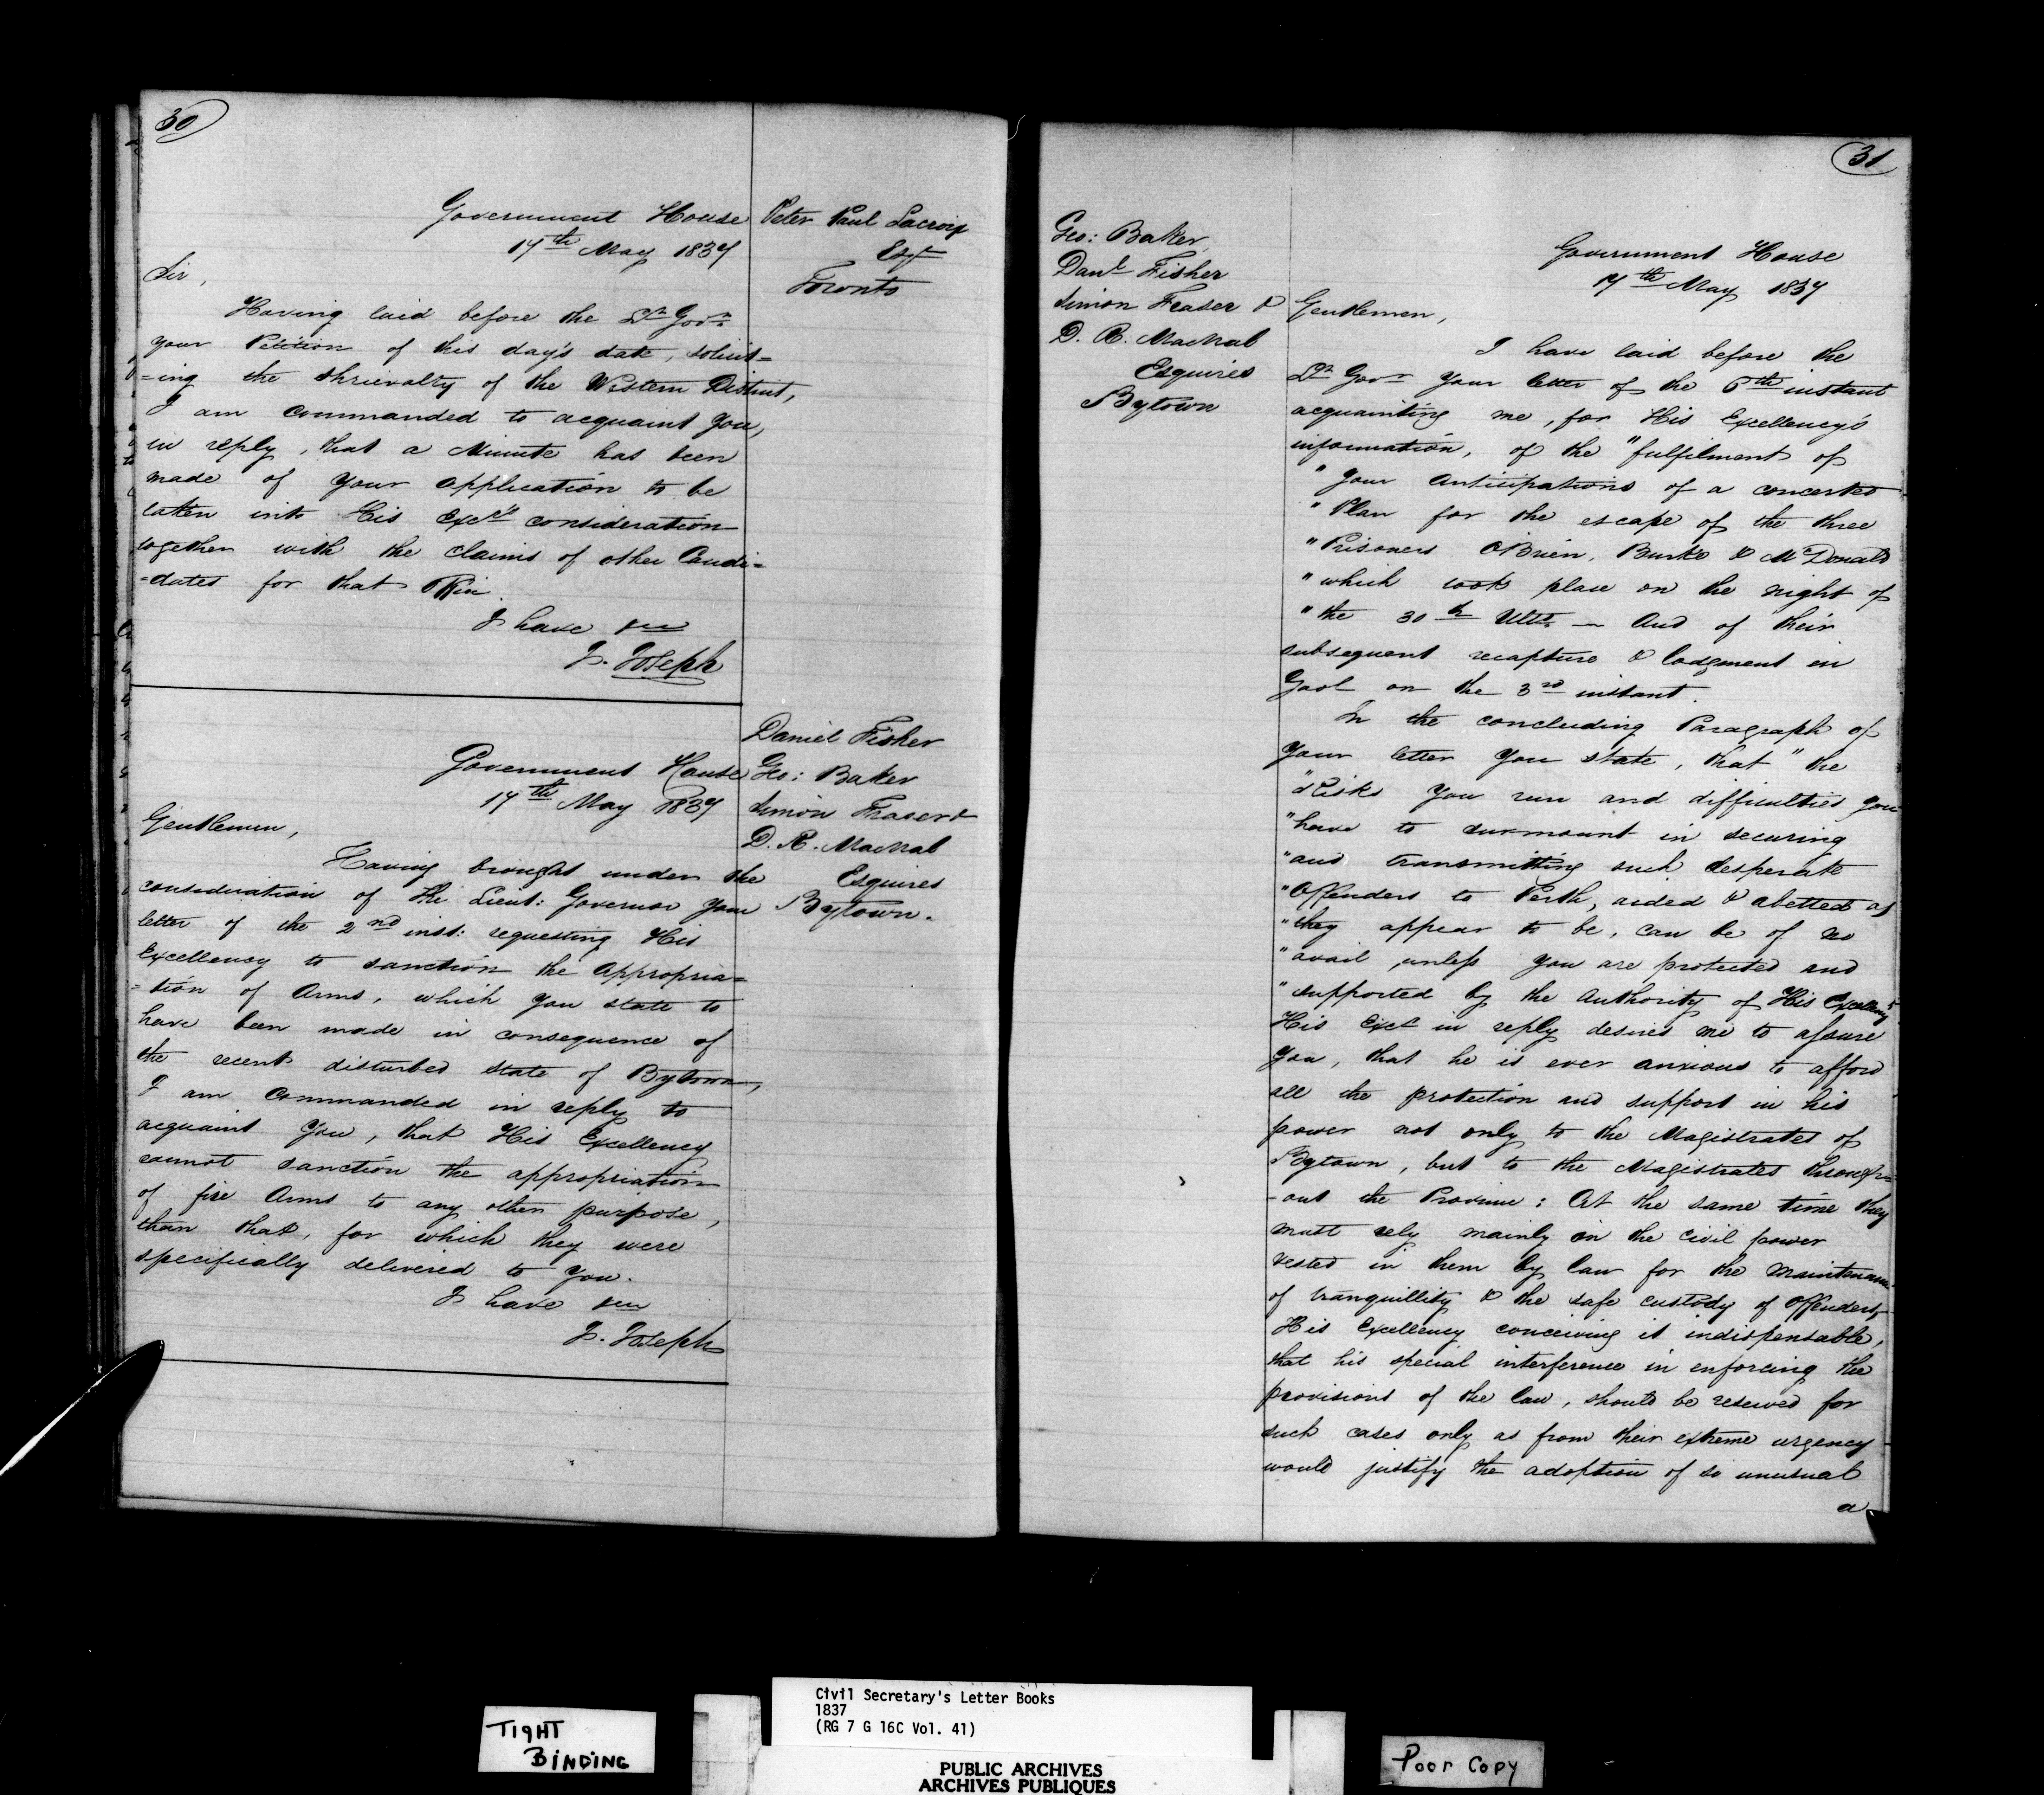 30
Government House
17th May 1837
Peter Paul Lacroix
Esqr
Toronto
Sir,
Having laid before the Lt Govr
your Petition of this day's date, solicit=
=ing the Shrievalty of the Western District,
I am commanded to acquaint you,
in reply, that a Minute has been
made of your application to be
taken into His Excy's consideration
together with the claims of other Candi=
=dates for that
I have &c
J. Joseph
Government House
17th May 1837
Daniel Fisher
Geo: Baker
Simon Fraser &
D. R. MacNab
Esquires
Bytown.
Gentlemen,
Having brought under the
consideration of the Lieut: Governor your
letter of the 2nd inst: requesting His
Excellency to sanction the appropria=
=tion of Arms, which you state to
have been made in consequence of
the recent disturbed state of Bytown,
I am commanded in reply to
acquaint you, that His Excellency
cannot sanction the appropriation
of fire Arms to any other purpose,
than that, for which they were
specifically delivered to you.
I have &c
J. Joseph
31
Geo: Baker,
Danl Fisher
Simon Fraser &
D. R. MacNab
Esquires
Bytown
Government House
17th May 1837
Gentlemen,
I have laid before the
Lt Govr your letter of the instant
acquainting me, for His Excellency's
information, of the "fulfilment of
"your anticipations of a concerted
"Plan for the escape of the three
"Prisoners O'Brien, Burke & McDonald
"which took place on the night of
"the 30th Ulto — And of their
subsequent recapture & lodgment in
Gaol on the 3rd instant.
In the concluding Paragraph of
your letter you state, that "the
"Risks you run and difficulties you
"have to surmount in securing
"and transmitting such desperate
"Offenders to Perth, aided & abetted as
"they appear to be, can be of no
"avail, unless you are protected and
"supported by the Authority of His Excellency"
His Excy in reply desires me to assure
you, that he is ever anxious to afford
all the protection and support in his
power not only to the Magistrates of
Bytown, but to the Magistrates through=
=out the Province: At the same time they
must rely mainly on the civil power
vested in them by law for the maintenance
of tranquillity & the safe custody of offenders,
His Excellency conceiving it indispensable,
that his special interference in enforcing the
provisions of the law, should be reserved for
such cases only as from their extreme urgency
would justify the adoption of so unusual
a
TIGHT
BINDING
Civil Secretary's Letter Books
1837
(RG 7 G 16C Vol. 41)
PUBLIC ARCHIVES
ARCHIVES PUBLIQUES
Poor Copy